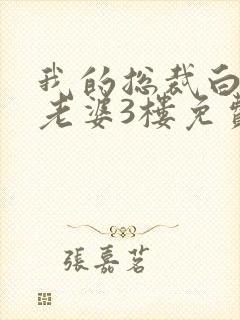 我的总裁白
老婆3楼免费
張嘉茗